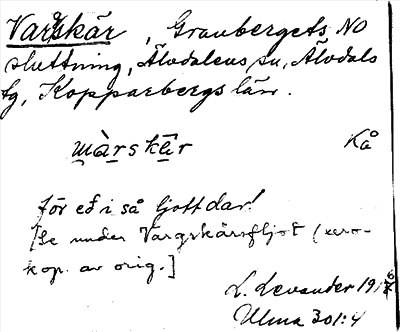 Vargskär, Graubergets NO
sluttning, Älvdalens sn, Älvdals
tg, Kopparbergs län.
wàrskę̄r Kå
för eð i så ljott dar!
[Se under Vargskärsfljot (xero-
kop. av orig.]
L. Levander 19
Ulma 301:4